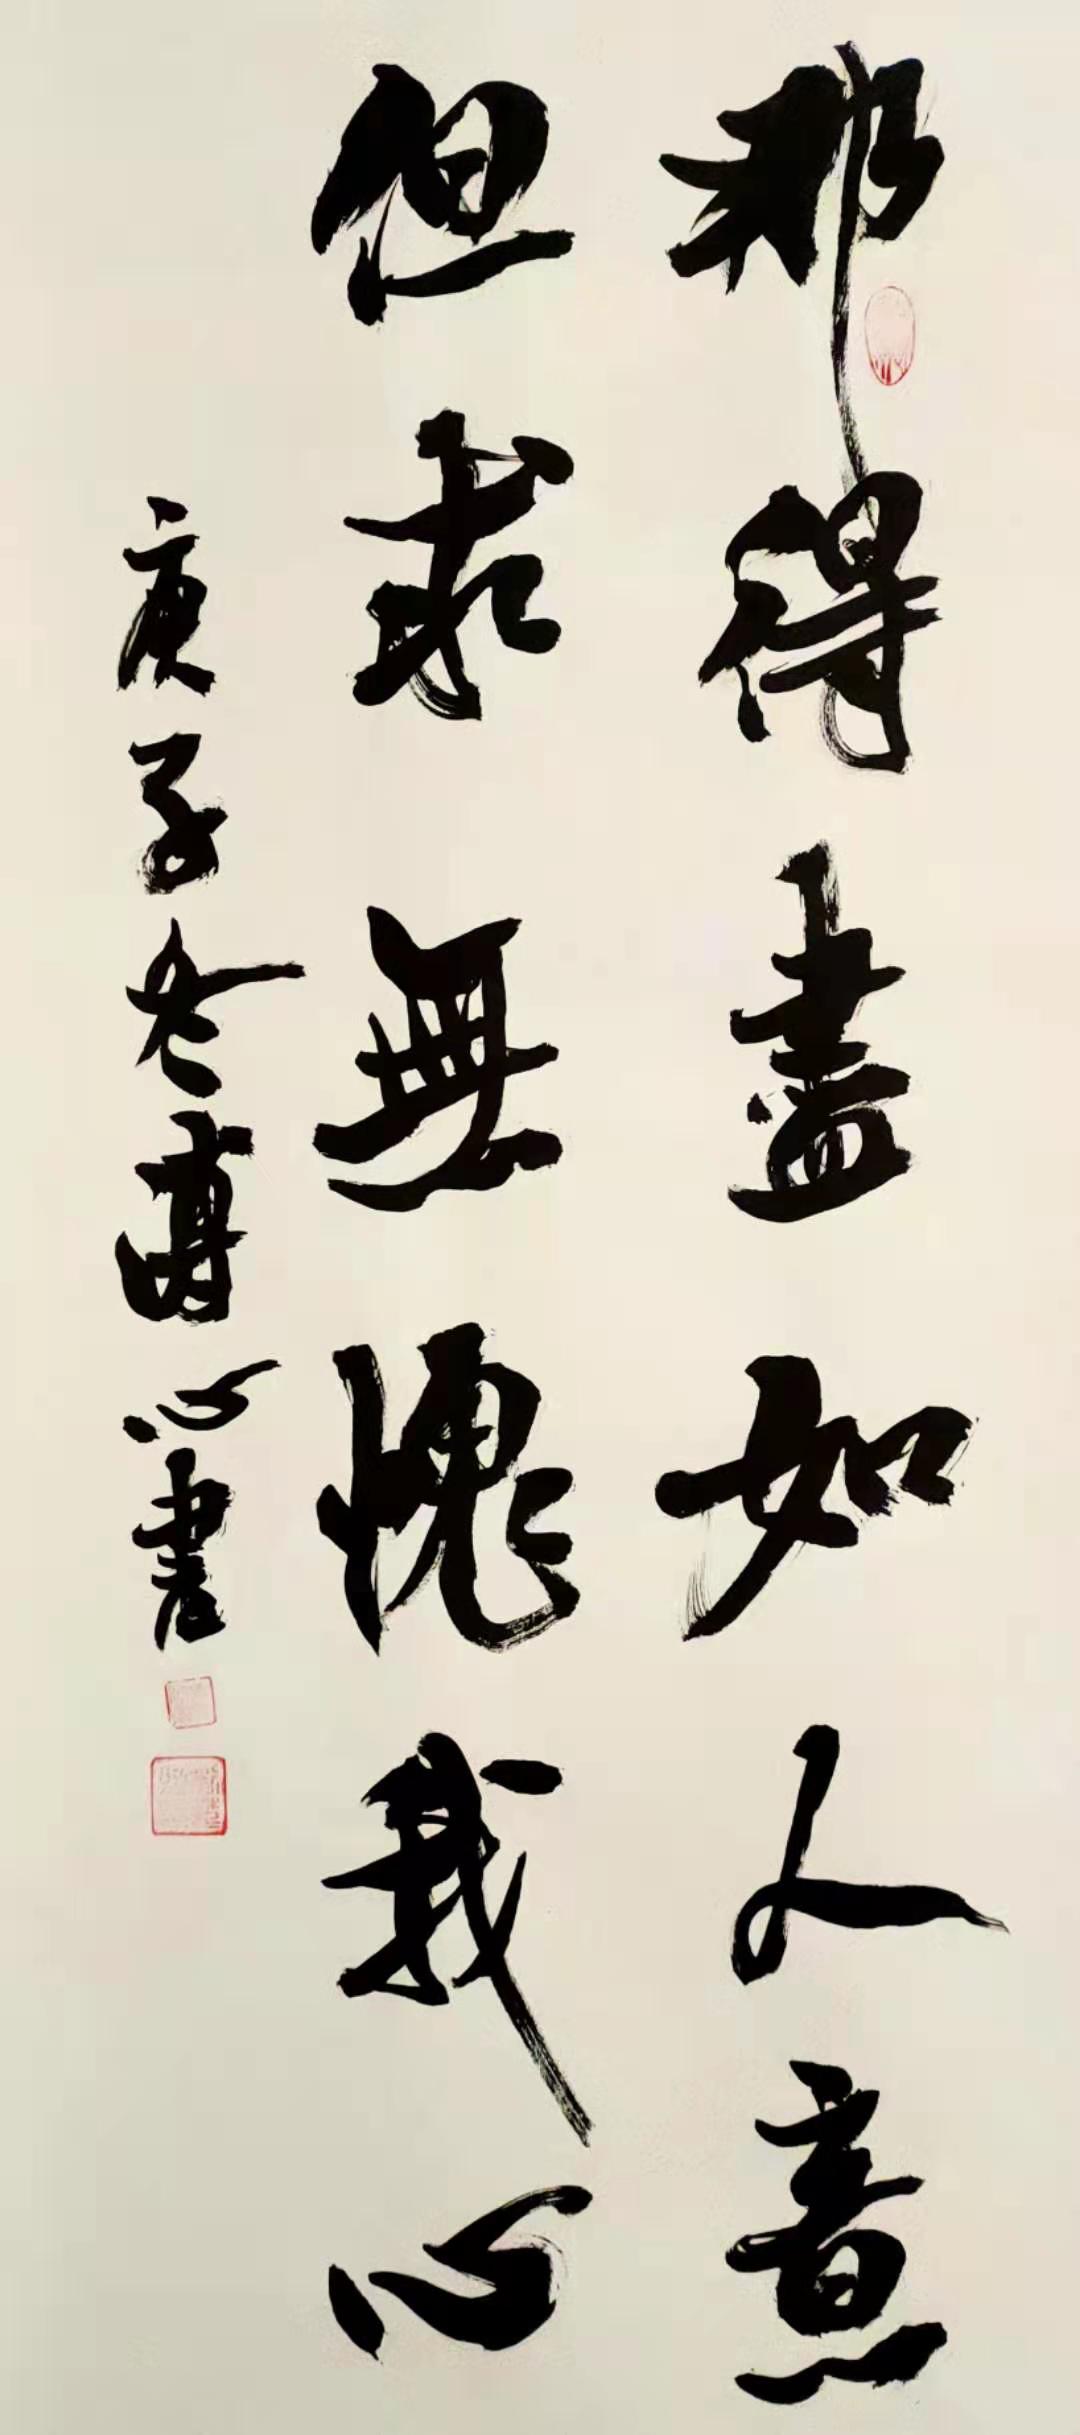 那得盡如人意
但求無愧我心
庚子冬 心書